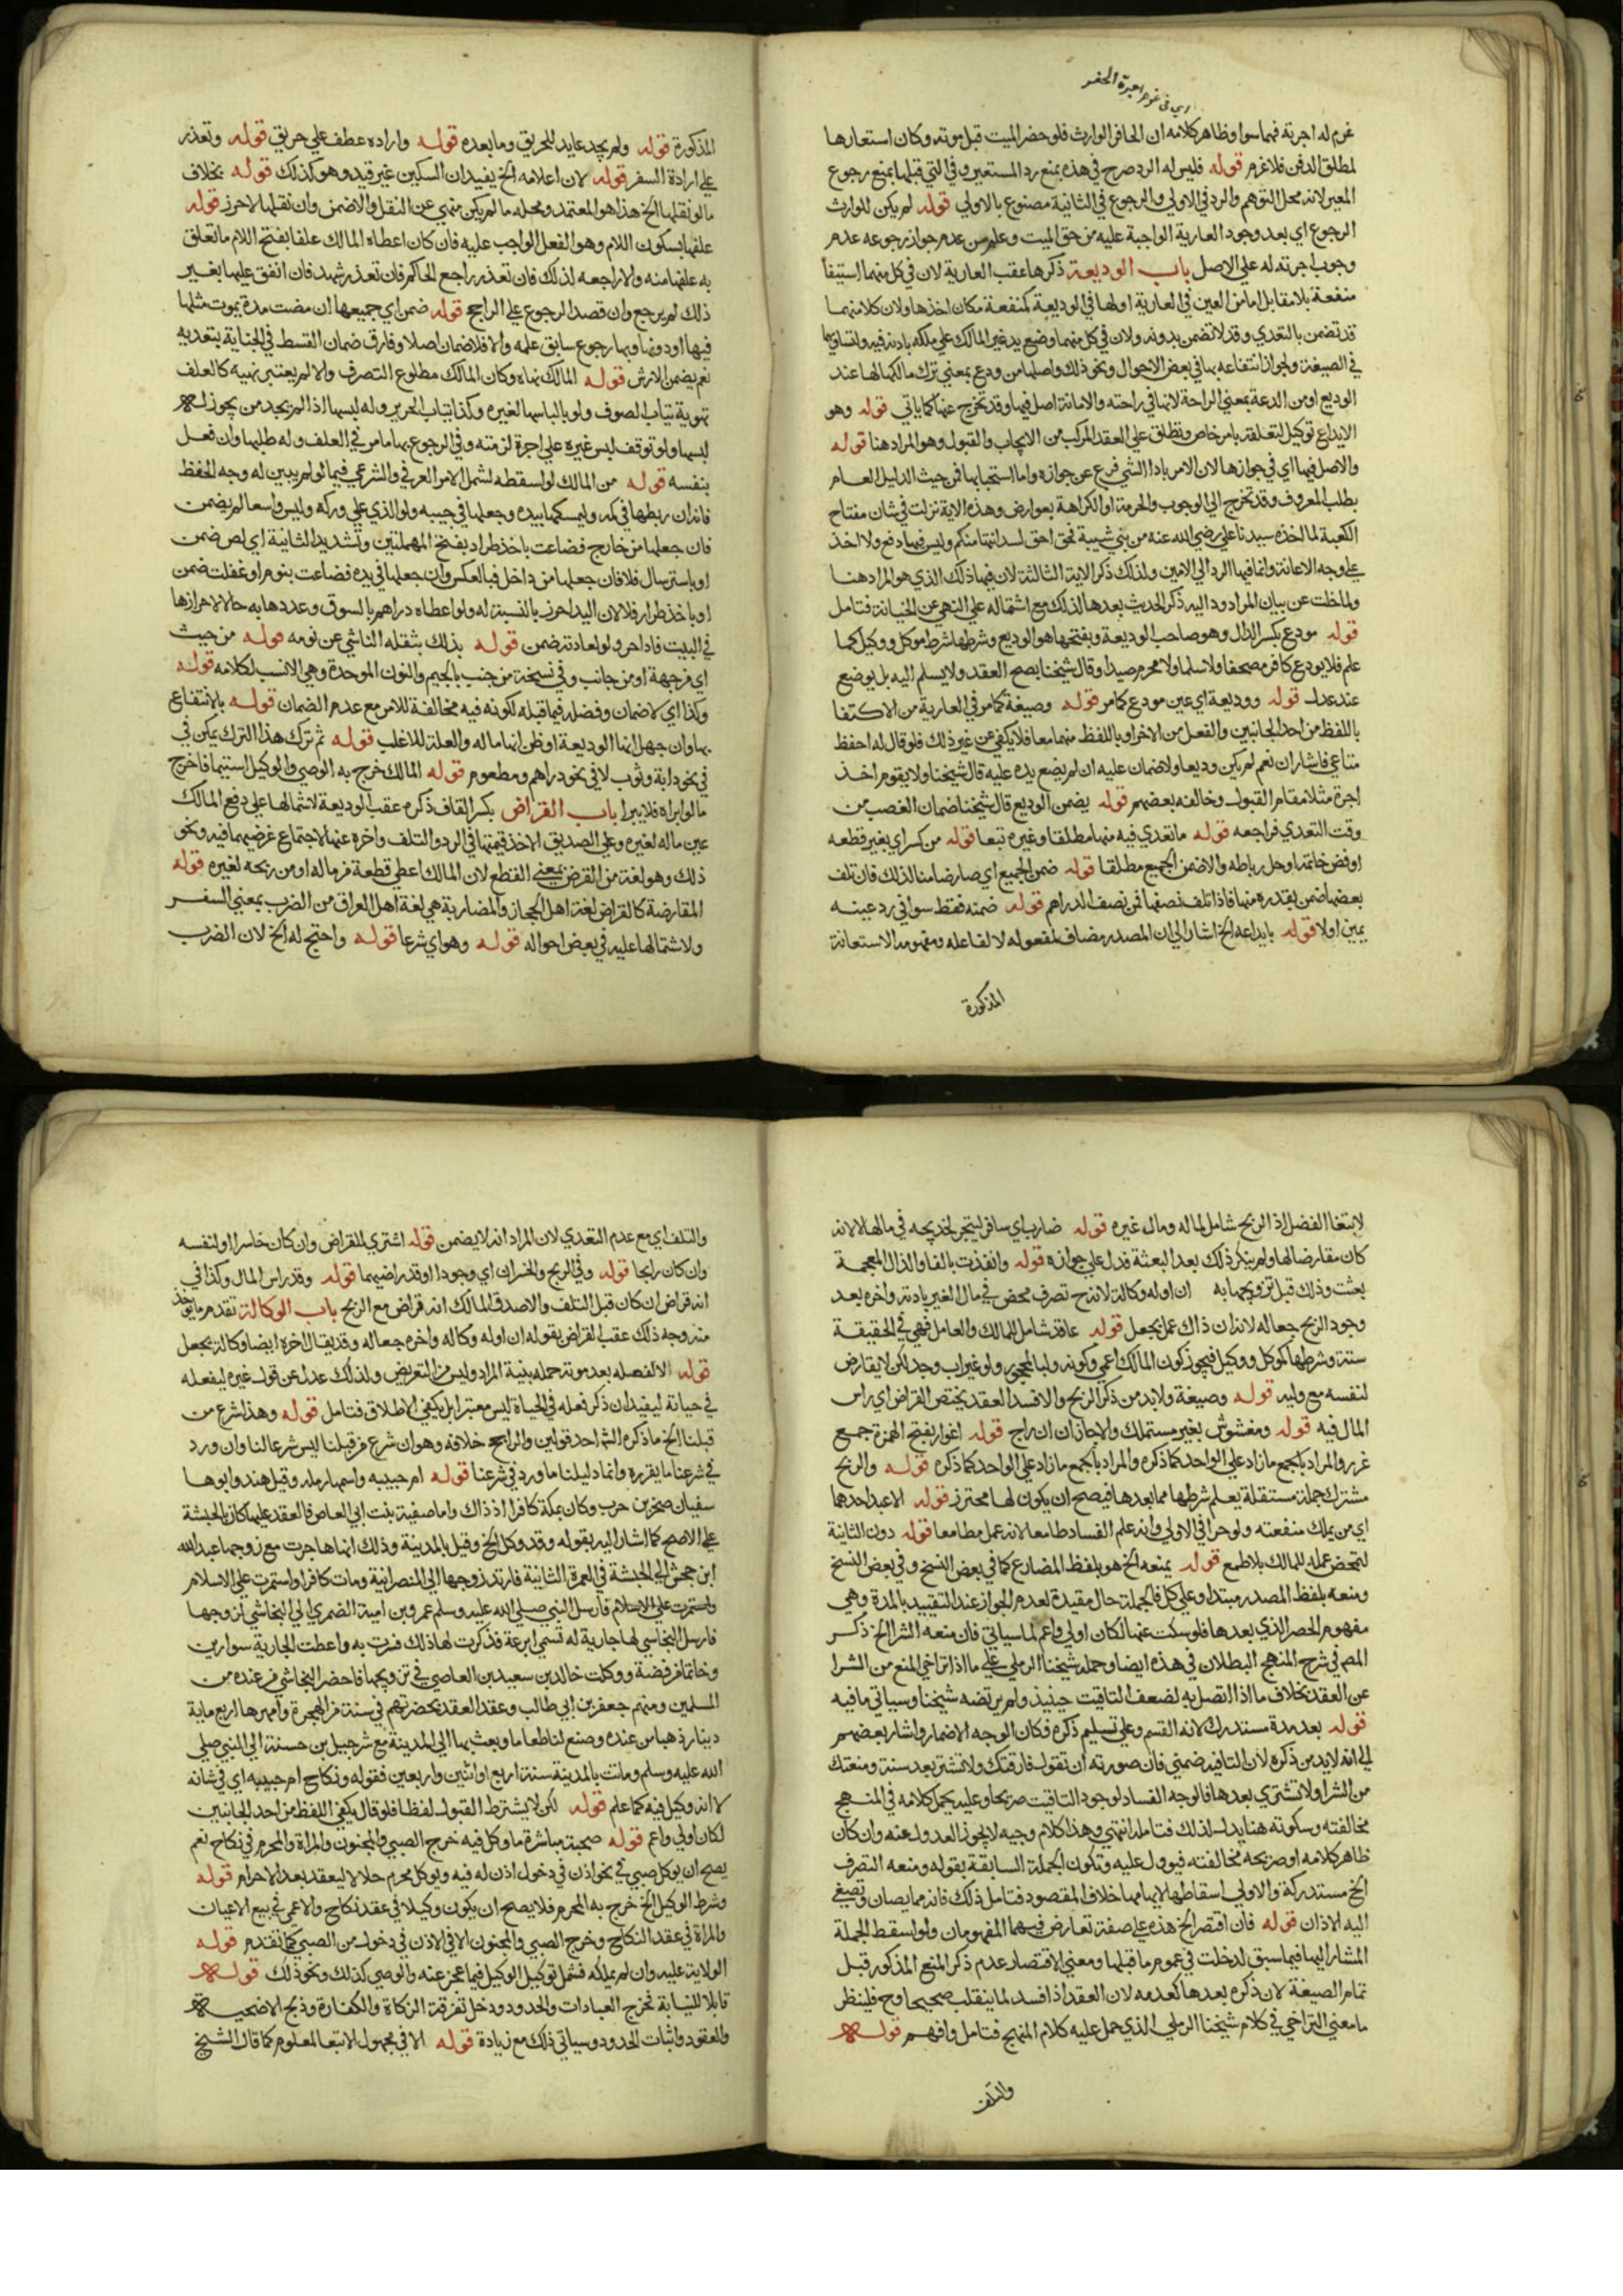 اي في غرم اجرة الحفر
غرم له اجرته فهما سوا وظاهر كلامه ان الحافر الوارث فلو حضر الميت قبل موته وكان استعارها
لمطلق الدفن فلا غرم قوله فليس له الرد صرح في هذه بمنع رد المستعير وفي التي قبلها بمنع رجوع
المعير لانه محل التوهم والرد في الاولي والرجوع في الثانية مصنوع بالاولي قوله لم يكن للوارث
الرجوع اي بعد وجود العارية الواجبة عليه من حق الميت وعلم من عدم جواز رجوعه عدم
وجوب اجرته له علي الاصل باب الوديعة ذكرها عقب العارية لان في كل منهما استيفا
منفعة بلا مقابل اما من العين في العارية او لها في الوديعة كمنفعة مكان اخذها ولان كلا منهما
قد تضمن بالتعدي وقد لا تضمن بدونه ولان في كل منهما وضع يد غير المالك علي ملكه باذنه فيه ولتساويهما
في الصيغة ولجواز انتفاعه بها في بعض الاحوال ونحو ذلك واصلها من ودع بمعني ترك مالكها لها عند
الوديع او من الدعة بمعني الراحة لانها في راحته والامانة اصل فيها وقد تخرج عنها كما ياتي قوله وهو
الايداع توكيل لتعلقه بامر خاص وتطلق علي العقد المركب من الايجاب والقبول وهو المراد هنا قوله
والاصل فيها اي في جوازها لان الامر باداء الشي فرع عن جوازه واما استحبابها فمن حيث الدليل العام
بطلب المعروف وقد تخرج الي الوجوب والحرمة او الكراهة بعوارض وهذه الاية نزلت في شان مفتاح
الكعبة لما اخذه سيدنا علي رضي الله عنه من بني شيبة نحن احق لسدانتها منكم وليس فيها دفع ولا اخذ
علي وجه الاعانة وانما فيها الرد الي الامين ولذلك ذكر الاية الثالثة لان فيها ذلك الذي هو المراد هنا
ولما خلت عن بيان المراد ود اليه ذكر الحديث بعدها لذلك مع اشتماله علي النهي عن الخيانة فتامل
قوله مودع بكسر الدال وهو صاحب الوديعة وبفتحها هو الوديع وشرطها شرط موكل ووكيل كما
علم فلا يودع كافر مصحفا ولا مسلما ولا محرم صيدا وقال شيخنا يصح العقد ولا يسلم اليه بل يوضع
عند عدل قوله ووديعة اي عين مودع كما مر قوله وصيغة كما مر في العارية من الاكتفا
باللفظ من احد الجانبين والفعل من الاخر او باللفظ منهما معا فلا يكفي عن غير ذلك فلو قال له احفظ
متاعي فاشار ان نعم لم يكن وديعا ولا ضمان عليه ان لم يضع يده عليه قال شيخنا ولا يقوم اخذ
اجرة مثلا مقام القبول وخالفه بعضهم قوله يضمن الوديع قال شيخنا ضمان الغصب من
وقت التعدي فراجعه قوله ما تعدي فيه منهما مطلقا وغيره تبعا قوله من كسر اي بغير قطعه
او فض خاتمة او حل رباطه والا ضمن الجميع مطلقا قوله ضمن الجميع اي صار ضامنا لذلك فان تلف
بعضها ضمن بقدره منها فاذا تلف نصفها فمن نصف الدراهم قوله ضمنه فقط سوا في رد عينه
يمين اولا قوله بايداعه الخ اشار الي ان المصدر مضاف لمفعوله لا لفاعله ومفهومه الاستعانة
المذكورة
المذكورة قوله ولم يجد عايد للحريق وما بعده قوله واراده عطف علي حريق قوله وتعذر
علي ارادة السفر قوله لان اعلامه الخ يفيد ان السكين غير قيد وهو كذلك قوله بخلاف
ما لو نقلها الخ هذا هو المعتمد ومحله ما لم يكن منهي عن النقل والا ضمن وان نقلها لاحرز قوله
علفها بسكون اللام وهو الفعل الواجب عليه فان كان اعطاه المالك علفا بفتح اللام ما تعلق
به علفها منه والا راجعه لذلك فان تعذر راجع الحاكم فان تعذر شهد فان انفق عليها بغير
ذلك لم يرجع وان قصد الرجوع علي الراجح قوله ضمن اي جميعها ان مضت مدة يموت مثلها
فيها او دونها وبها رجوع سابق علمه والا فلا ضمان اصلا وفارق ضمان القسط في الجناية بتعديه
نعم يضمن الارش قوله المالك نهاه وكان المالك مطلوع التصرف والا لم يعتبر نهيه كالعلف
تهوية ثياب الصوف ولو بالباسها لغيره وكذا ثياب الحرير وله لبسها اذا لم يجد من يجوز له
لبسها ولو توقف لبس غيره علي اجرة لزمته وفي الرجوع بها ما مر في العلف وله طلبها وان فعل
بنفسه قوله من المالك لو اسقطه لشمل الامر العرفي والشرعي فيما لو لم يبين له وجه الحفظ
فانه ان ربطها في كمه ولم يمسكها بيده وجعلها في جيبه ولو الذي علي وركه وليس واسعا لم يضمن
فان جعلها من خارج فضاعت باخذ طرار بفتح المهملتين وتشديد الثانية اي لص ضمن
او باسترسال فلا فان جعلها من داخل فبالعكس وان جعلها في يده فضاعت بنوم او غفلت ضمن
او باخذ طرار فلا لان اليد احرز بالنسبة له ولو اعطاه دراهم بالسوق وعددها به حالا لاحرازها
في البيت فاذا اخر ولو لعادته ضمن قوله بذلك بثقله الناشي عن نومه قوله من حيث
اي من جهة او من جانب وفي نسخة من جنب بالجيم والنون الموحدة وهي الانسب لكلامه قوله
وكذا اي لا ضمان وفصله فيما قبله لكونه فيه مخالفة للامر مع عدم الضمان قوله بالانتفاع
بها وان جهل انها الوديعة او ظن انها ماله والعلة للاغلب قوله ثم ترك هذا الترك يكن في
في نحو دابة وثوب لا في نحو دراهم ومطعوم قوله المالك خرج به الوصي والوكيل استيما فاخرج
ما لو ابراه فلا يبرا باب القراض بكسر القاف ذكره عقب الوديعة لاشتمالها علي دفع المالك
عين ماله لغيره وعلي الصديق الاخذ قيمتها في الرد والتلف واخره عنها لاجتماع غرضهما فيه ونحو
ذلك وهو لغة من القرض بمعني القطع لان المالك اعطي قطعة من ماله او من ربحه لغيره قوله
المقارضة كالقراض لغة اهل الحجاز والمضاربة هي لغة اهل العراق من الضرب بمعني السفر
ولاشتمالها عليه في بعض احواله قوله وهو اي شرعا قوله واحتج له الخ لان الضرب
لابتغا الفضل اذ الربح شامل لماله ومال غيره قوله ضارب اي سافر ليتجر لخديجه في مالها لا لانه
كان مقارضا لها ولم ينكر ذلك بعد البعثة فدل علي جوازه قوله وانفذت بالفا والذال المعجمة
بعثت وذلك قبل تزويجها به ان اوله وكالة لانه ح تصرف محض في مال الغير باذنه واخره بعد
وجود الربح جعاله لانه ان ذاك عمل بجعل قوله عاقد شامل للمالك والعامل فهي في الحقيقة
ستة وشرطها كموكل ووكيل فيجوز كون المالك اعمي وكونه وليا لمحجور ولو غير اب وجد لكن لا يقارض
لنفسه مع وليه قوله وصيغة ولا بد من ذكر الربح والا فسد العقد يختص القراض اي راس
المال فيه قوله ومغشوش بغير مستهلك والا جاز ان راج قوله اغرار بفتح الهمزة جمع
غرر والمراد بالجمع ما زاد علي الواحد كما ذكره والمراد بالجمع ما زاد علي الواحد كما ذكره قوله والربح
مشترك جملة مستقلة يعلم شرطها مما بعدها فيصح ان يكون لها محترز قوله الا عبد احدهما
اي من يملك منفعته ولو حرا في الاولي وانه علم الفساد طامعا لانه عمل مطامعا قوله دون الثانية
لتمحض عمله للمالك بلا طمع قوله يمنعه الخ هو بلفظ المضارع كما في بعض النسخ وفي بعض النسخ
ومنعه بلفظ المصدر مبتدا وعلي كل فالجملة حال مقيدة لعدم الجواز عند التقييد بالمدة وهي
مفهوم الحصر الذي بعدها فلو سكت عنها لكان اولي واعم لما سياتي فان منعه الشرا الخ ذكر
المص في شرح المنهج البطلان في هذه ايضا وحمله شيخنا الرملي علي ما اذا تراخي المنع من الشرا
عن العقد بخلاف ما اذا اتصل به لضعف التاقيت حينيذ ولم يرتضه شيخنا وسياتي ما فيه
قوله بعد مدة مستدرك لانه القسم وعلي تسليم ذكره فكان الوجه الاضمار واشار بعضهم
الي انه لا بد من ذكره لان التاقيد ضمني فان صورته ان تقول فارقتك ولا تشتر بعد سنة ومنعتك
من الشرا ولا تشتري بعدها فالوجه الفساد لوجود التاقيت صريحا وعليه يحمل كلامه في المنهج
مخالفته وسكوته هنا يدل لذلك فتامله انتهي وهذا كلام وجيه لا يجوز العدول عنه وان كان
ظاهر كلامه او صريحه مخالفته فيوول عليه وتكون الجملة السابقة بقوله ومنعه التصرف
الخ مستدركة والاولي اسقاطها لايهامها خلاف المقصود فتامل ذلك فانه مما يصان وتصغي
اليه الاذان قوله فان اقتصر الخ هذه علي صفة تعارض فيهما المفهومان ولو اسقط الجملة
المشار اليها فيما سبق لدخلت في عموم ما قبلها ومعني الاقتصار عدم ذكر المنع المذكور قبل
تمام الصيغة لان ذكره بعدها كعدمه لان العقد اذا فسد لما ينقلب صحيحا وح فلينظر
ما معني التراخي في كلام شيخنا الرملي الذي حمل عليه كلام المنهج فتامل وافهم قوله
والتلف
والتلف اي مع عدم التعدي لان المراد انه لا يضمن قوله اشتري للقراض وان كان خاسرا او لنفسه
وان كان رابحا قوله وفي الربح والخسران اي وجودا او قدرا ضيهما قوله وقدر راس المال وكذا في
انه قراض ان كان قبل التلف والا صدق المالك انه قراض مع الربح باب الوكالة تقدم ما يوخذ
منه وجه ذلك عقب القراض بقوله ان اوله وكاله واخره جعاله وقد يقال اخره ايضا وكالة بجعل
قوله الا لفصله بعد موته حمله بنية المراد وليس من التعريض ولذلك عدل عن قول غيره ليفعله
في حياته ليفيد ان ذكر فعله في الحياة ليس معتبرا بل يكفي الاطلاق فتامل قوله وهذا شرع من
قبلنا الخ ما ذكره الش احد قولين والراجح خلافه وهو ان شرع من قبلنا ليس شرعا لنا وان ورد
في شرعنا ما يقرره وانما دليلنا ما ورد في شرعنا قوله ام حبيبه واسمها رمله وقيل هند وابوها
سفيان صخر بن حرب وكان بمكة كافرا اذ ذاك واما صفية بنت ابي العاص فالعقد عليها كان بالحبشة
علي الاصح كما اشار اليه بقوله وقد وكل الخ وقيل بالمدينة وذلك انها هاجرت مع زوجها عبد الله
ابن جحش الي الحبشة في العمرة الثانية فارتد زوجها الي النصرانية ومات كافرا واستمرت علي الاسلام
واستمرت علي الاسلام فارسل النبي صلي الله عليه وسلم عمرو بن امية الضمري الي النجاشي ان زوجها
فارسل النجاسي لها جارية له تسمي ابرعة فذكرت لها ذلك فسرت به واعطت الجارية سوارين
وخاتما من فضة ووكلت خالد بن سعيد بن العاصي في تزويجها فاحضر النجاشي من عنده من
المسلمين ومنهم جعفر بن ابي طالب وعقد العقد بحضرتهم في سنة من الهجرة وامهرها اربع ماية
دينار ذهبا من عنده وصنع لنا طعاما وبعث بها الي المدينة مع شرحبيل بن حسنة الي النبي صلي
الله عليه وسلم وماتت بالمدينة سنة اربع او اثنين واربعين فقوله ونكاح ام حبيبه اي في شانه
لا انه وكيل فيه كما علم قوله لكن لا يشترط القبول لفظا فلو قال يكفي اللفظ من احد الجانبين
لكان اولي واعم قوله صحبة مباشرة ما وكل فيه خرج الصبي والمجنون والمراة والمحرم في نكاح نعم
يصح ان يوكل صبي في نحو اذن في دخول اذن له فيه ويوكل محرم حلالا ليعقد بعد الاحرام قوله
وشرط الوكيل الخ خرج به المحرم فلا يصح ان يكون وكيلا في عقد نكاح والاعمي في بيع الاعيان
والمراة في عقد النكاح وخرج الصبي والمجنون الا في الاذن في دخول من الصبي كما تقدم قوله
الولاية عليه وان لم يملكه فشمل توكيل الوكيل فيما عجز عنه والوصي كذلك ونحو ذلك قوله
قابلا للنيابة تخرج العبادات والحدود ودخل تفرقة الزكاة والكفارة وذبح الاضحية
والعقود واثبات الحدود وسياتي ذلك مع زيادة قوله الا في مجهول لا تبعا لمعلوم كما قال الشيخ